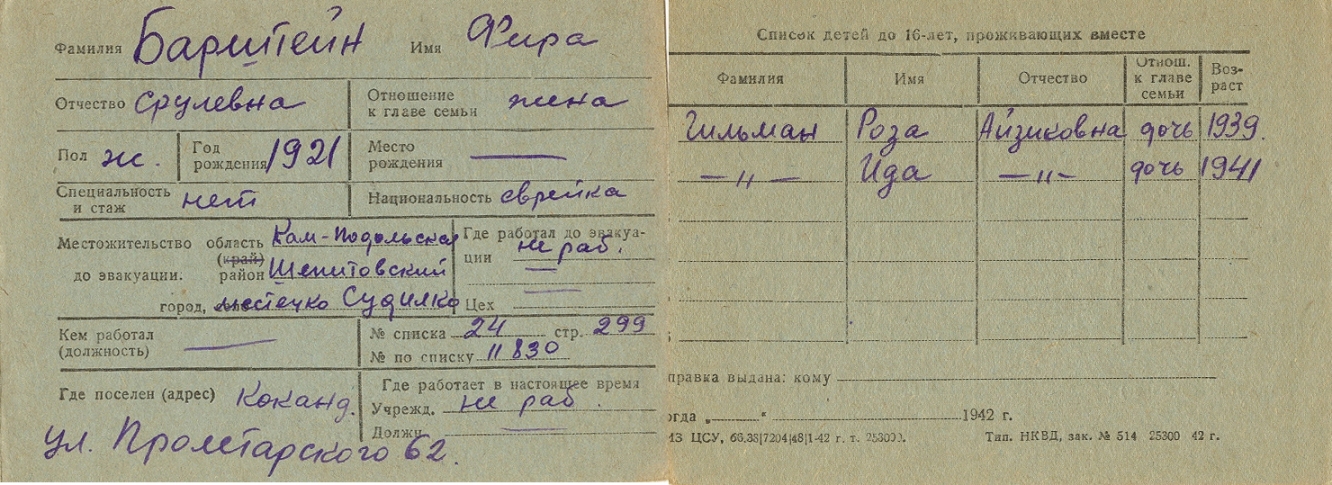 Фамилия Барштейн Имя Фира
Отчество Срулевна Отношение к главе семьи жена
Пол ж. Год рождения 1921 Место рождения —
Специальность и стаж нет Национальность еврейка
Местожительство до эвакуации. область Кам-Подольская
(край)
район Шепитовский
город, местечко Судилко
Где работал до эвакуации не раб.
—
Цех —
Кем работал (должность) —
№ списка 24 стр. 299
№ по списку 11830
Где поселен (адрес) Коканд.
ул. Пролетарского 62.
Где работает в настоящее время
Учрежд. не раб.
Должн —
Список детей до 16-лет, проживающих вместе
Фамилия Имя Отчество Отнош. к главе семьи Возраст
Гильман Роза Айзиковна дочь 1939.
— " — Ида — " — дочь 1941
правка выдана: кому
огда „ — “ 1942 г.
ИЗ ЦСУ, 66.38|7204|48|1-42 г. т. 253000. Тип. НКВД, зак. № 514 25300 42 г.